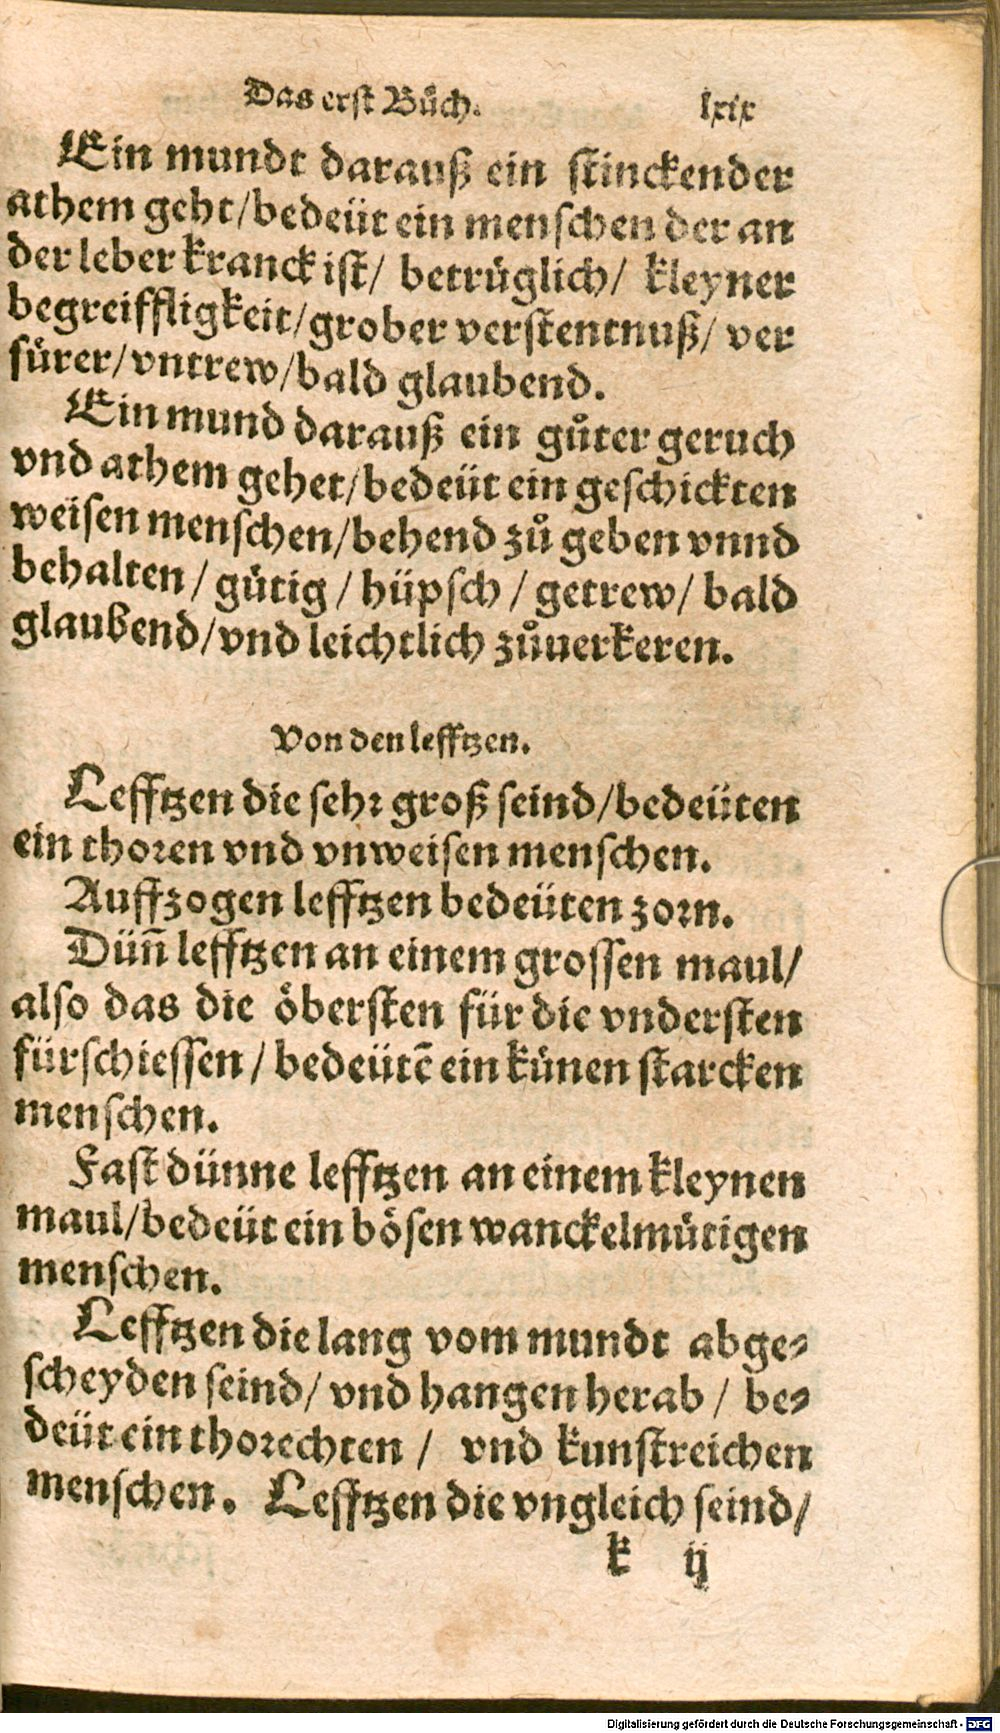 Das erst Bůch. lxix
Ein mundt darauß ein stinckender
athem geht/bedeüt ein menschen der an
der leber kranck ist/ betrüglich/ kleyner
begreiffligkeit/grober verstentnuß/ ver
fürer/vntrew/bald glaubend.
Ein mund darauß ein gůter geruch
vnd athem gehet/bedeüt ein geschickten
weisen menschen/behend zů geben vnnd
behalten / gütig / hüpsch / getrew/ bald
glaubend/vnd leichtlich zůuerkeren.
Von den lefftzen.
Lefftzen die sehr groß seind/bedeüten
ein thoren vnd vnweisen menschen.
Auffzogen lefftzen bedeüten zorn.
Düñ lefftzen an einem grossen maul/
also das die öbersten für die vndersten
fürschiessen / bedeütē ein künen starcken
menschen.
Fast dünne lefftzen an einem kleynen
maul/bedeüt ein bösen wanckelmütigen
menschen.
Lefftzen die lang vom mundt abge⸗
scheyden seind/ vnd hangen herab / be⸗
deüt ein thorechten / vnd kunstreichen
menschen. Lefftzen die vngleich seind/
k ij
Digitalisierung gefördert durch die Deutsche Forschungsgemeinschaft - DFG